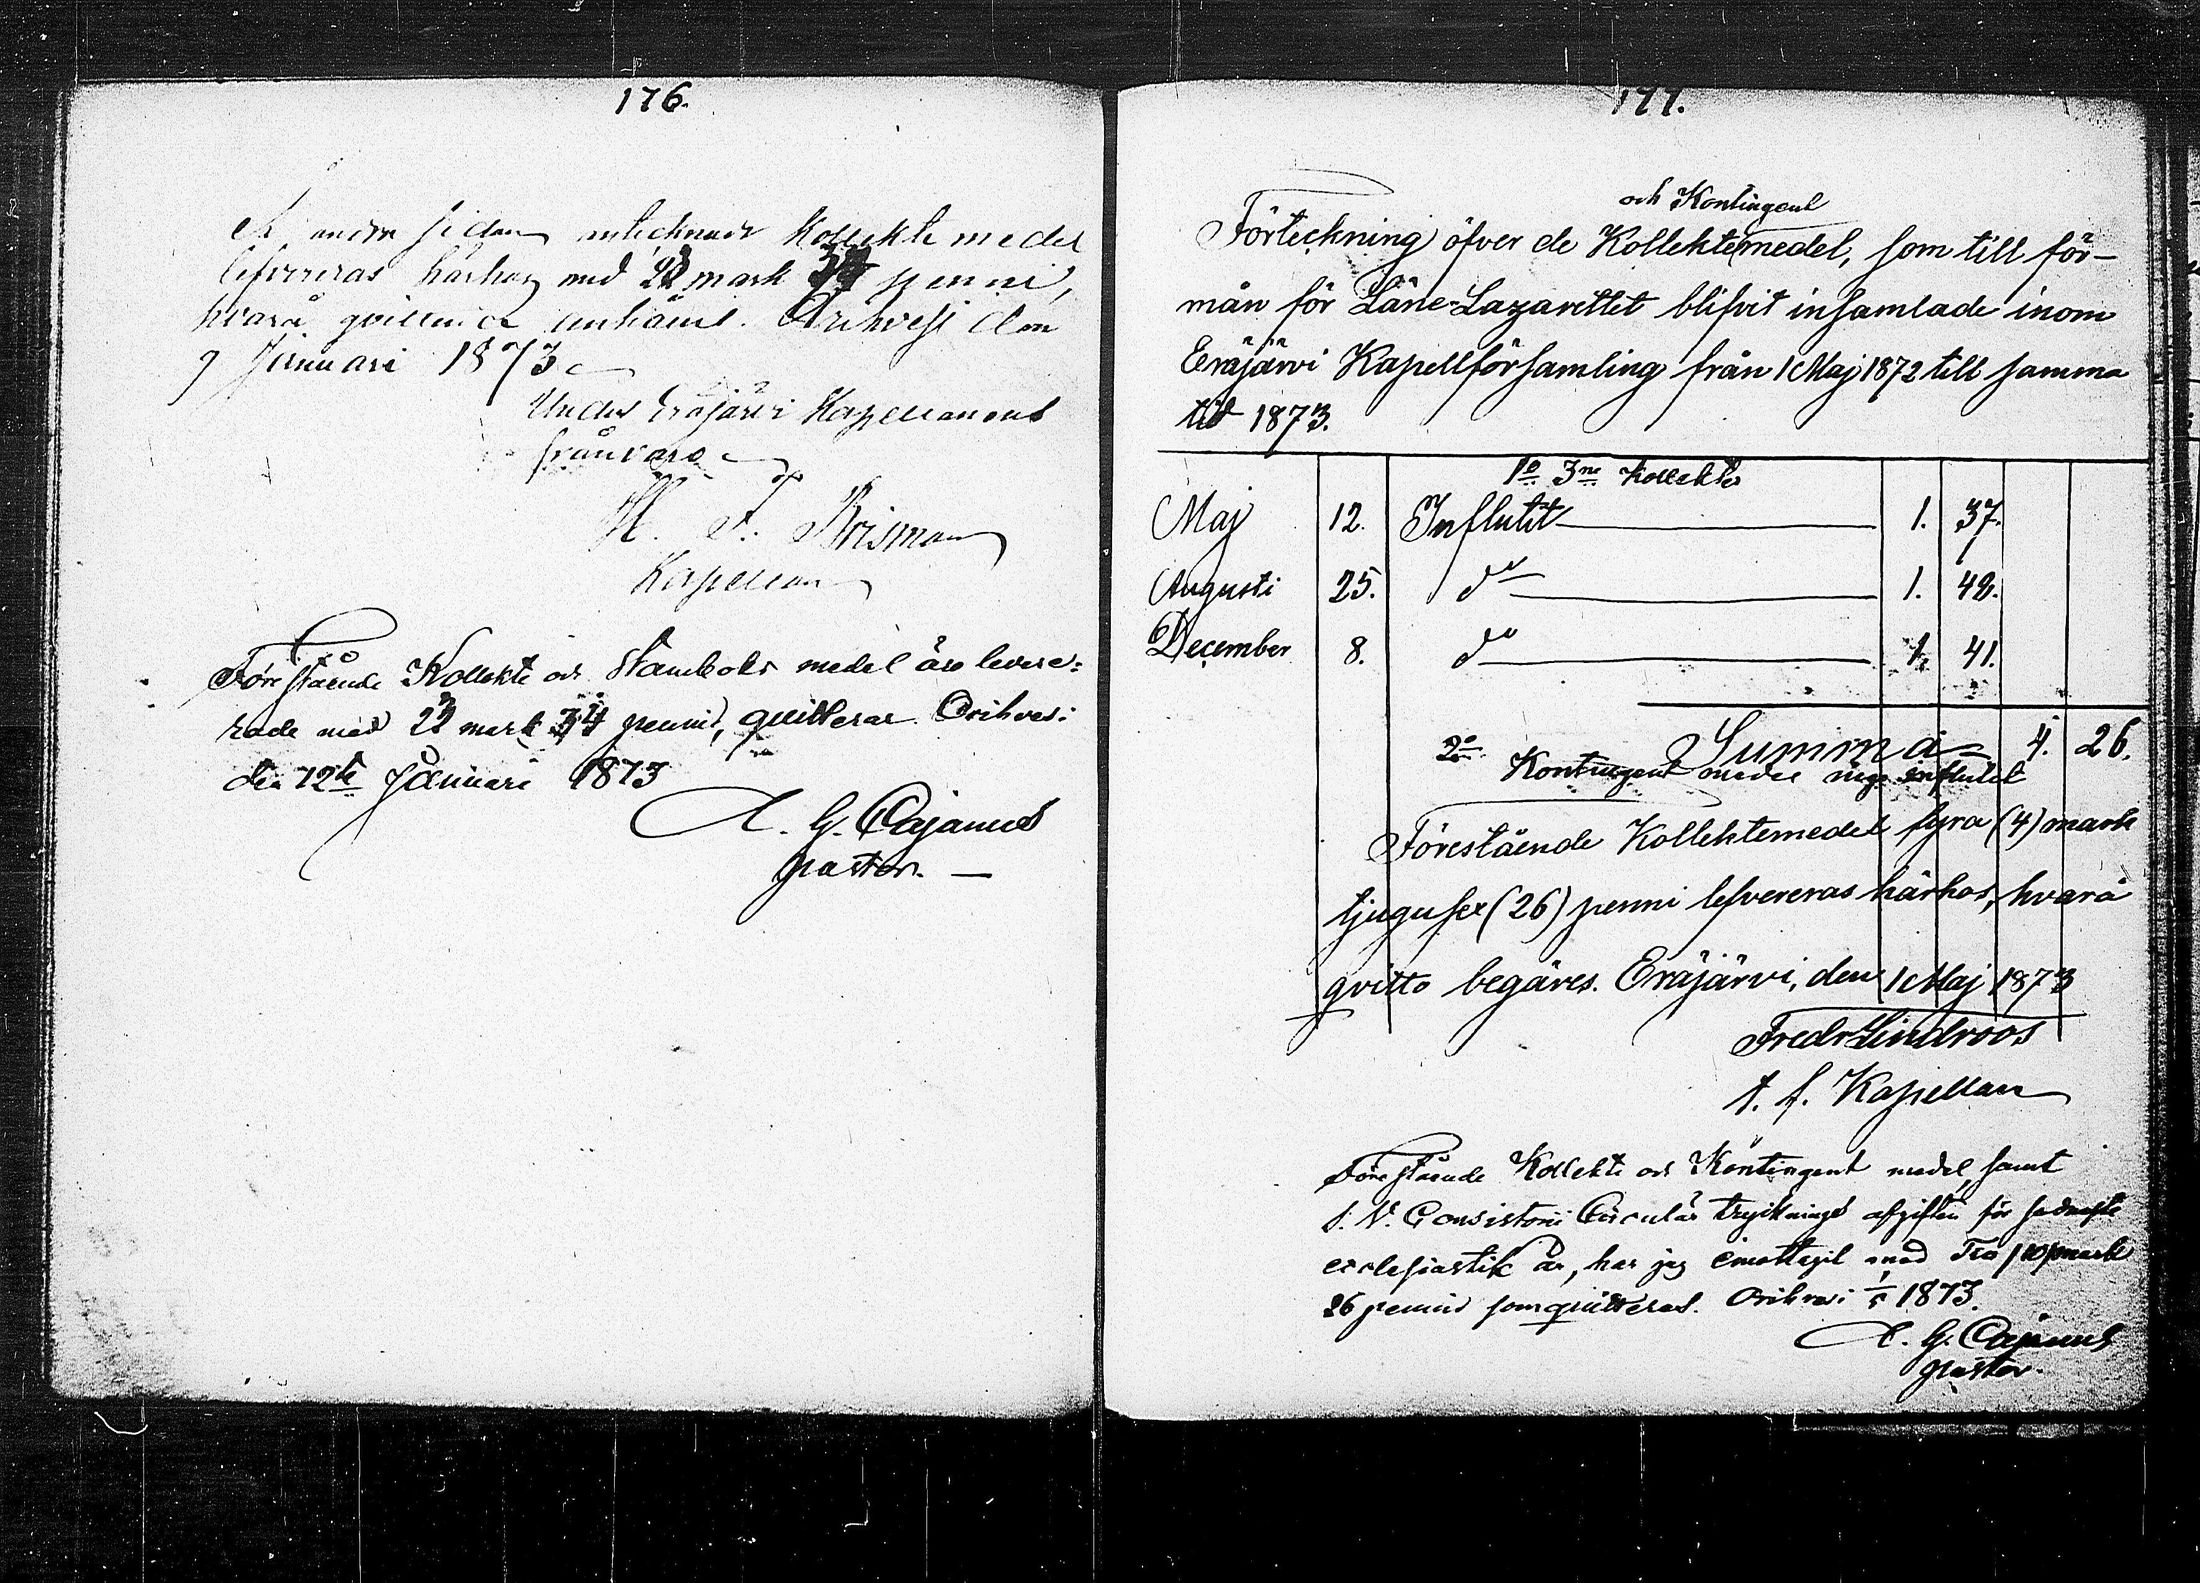 176.
Å andra sidan antecknade Kollekte medel
lefvereras härhos med 22 mark 34 penni,
hvarå qvittence anhålles. Orihvesi den
9 Januari 1873
Under Eräjärvi Kapellanens
frånvaro
H. F. Brisman
Kapellan
Förestående Kollekte och Stamboks medel äro levere-
rade med 22 mark 34 penni, quitterar Orihvesi
den 12te Januari 1873
A. G. Cajanus
pastor.
177.
och Kontingent
Förteckning öfver de Kollektemedel, som till för-
mån för Läne-Lazarettet blifvit insamlade inom
Eräjärvi Kapellförsamling från 1 Maj 1872 till samma
tid 1873.
1o 3ne Kollekter
Maj 12. Influtit 1. 37.
Augusti 25. do 1. 48.
December 8. do 1. 41.
Summa 4. 26.
2o Kontingent medel inga influtit
Förestående Kollektemedel fyra (4) mark
tjugusex (26) penni lefvereras härhos, hvarå
qvitto begäres. Eräjärvi, den 1 Maj 1873
Fredr Lindroos
t. f. Kapellan
Förestående Kollekte och Kontingent medel, samt
S. V. Consistorii Circulär tryckningsafgiften för sednaste
ecclesiastik år, har jag emottagit med Tio (10) mark
26 pennis som quitteras. Orihvesi 1/5 1873.
A. G. Cajanus
pastor.